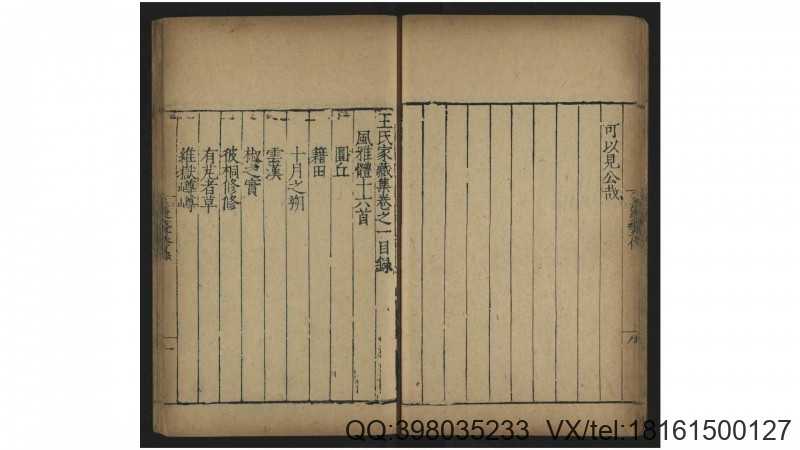 可以見公哉
王氏家藏集卷之一目錄
風雅體十六首
圜丘
籍田
十月之朔
雲漢
椒之實
彼桐修修
有芃者草
維嶽嶟嶟
QQ:398035233 VX/tel:18161500127